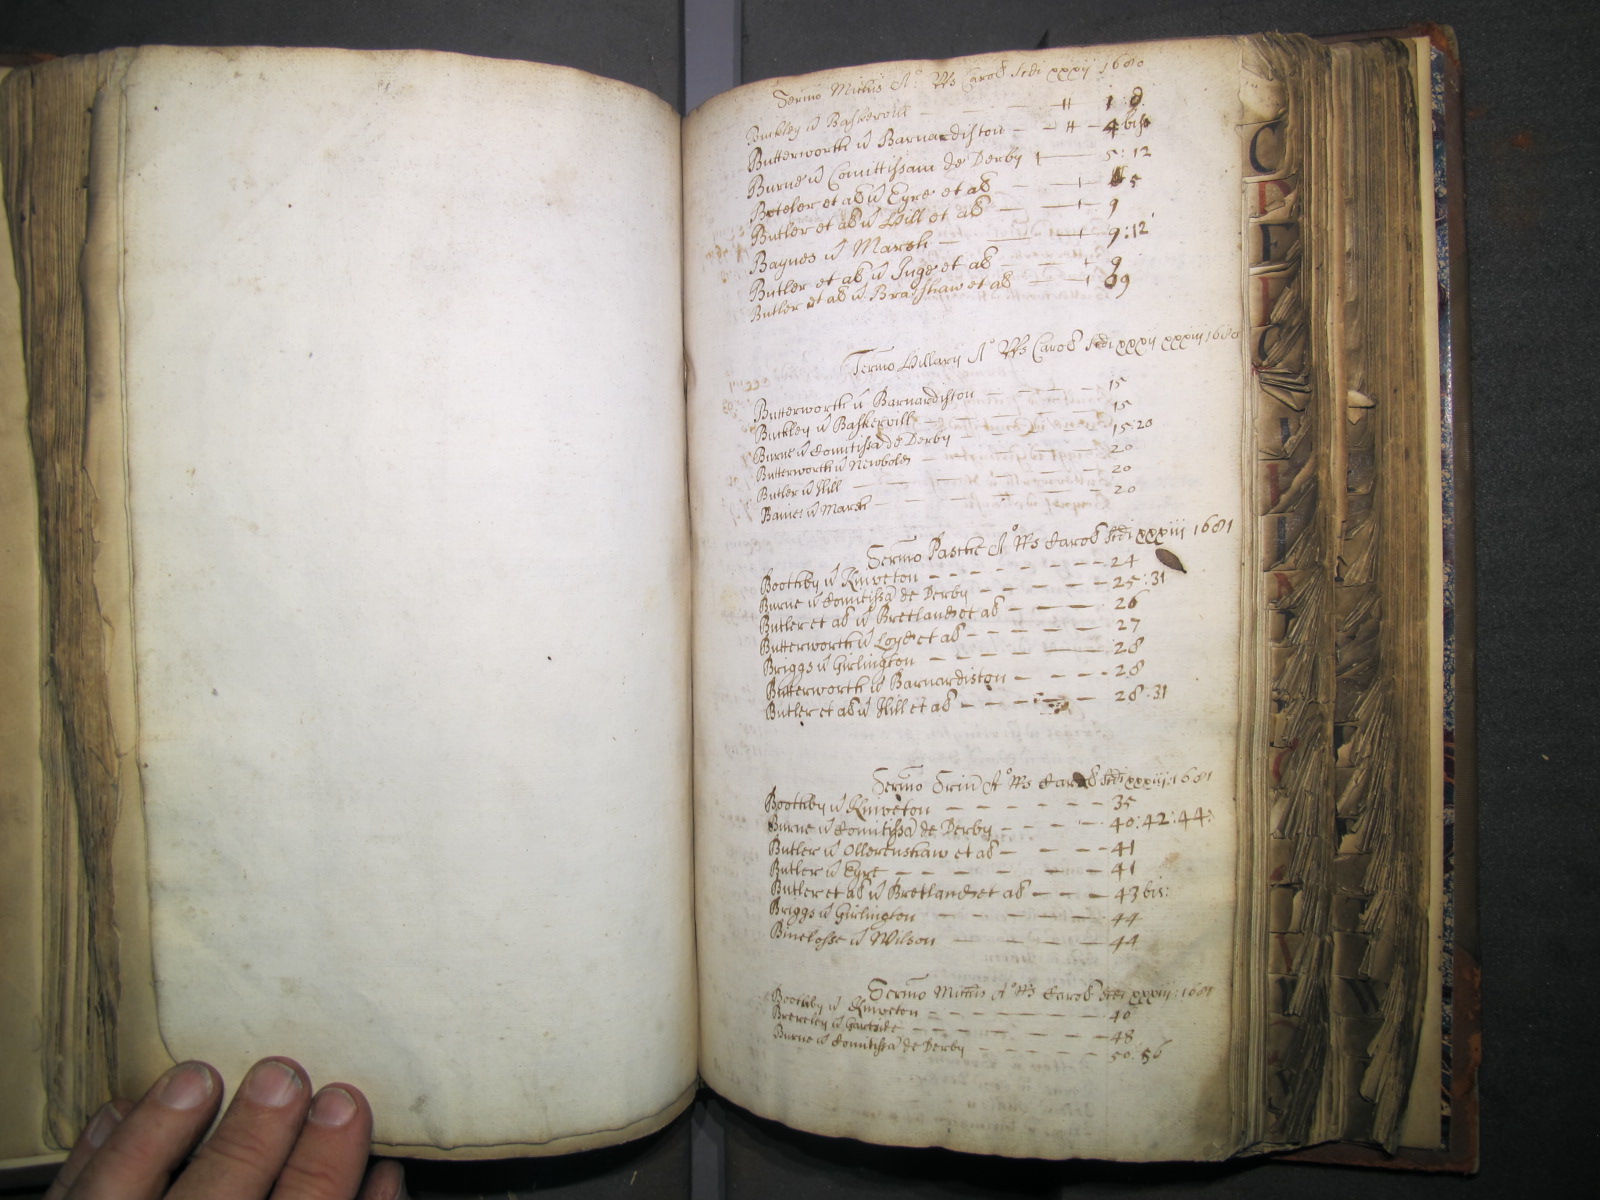 Termo Michis Ao RRs Carol Scdi xxxij 1680
Buckley v Baskervile — — — ++ 1 : 8
Butterworth v Barnardiston — — ++ — 4 bis
Burne v Comitissam de Derby + — 5 : 12
Boteler et al v Eyre et al — — + 5
Butler et al v Hill et al — — + 9
Baynes v Marsh — — + 9 : 12
Butler et al v Inge et al — — + 9
Butler et al v Bradshaw et al — + 9
Termo Hillarij Ao RRs Carol Scdi xxxij xxxiij 1680
Butterworth v Barnardiston — — — — 15
Buckley v Baskervill — — — — 15
Burne v Comitissa de Derby — — — — 15 : 20
Butterworth v Newbold — — — — 20
Butler v Hill — — — — 20
Baines v Marsh — — — — 20
Termo Pasche Ao RRs Carol Scdi xxxiij 1681
Boothby v Kniveton — — — — — — — 24
Burne v Comitissa de Derby — — — — — 25 : 31
Butler et al v Bretland et al — — — — 26
Butterworth v Loyd et al — — — — — 27
Briggs v Girlington — — — — — — — 28
Butterworth v Barnardiston — — — — 28
Butler et al v Hill et al — — — — — 28 : 31
Termo Trin Ao RRs Carol Scdi xxxiij : 1681
Boothby v Kniveton — — — — — — 35
Burne v Comitissa de Derby — — — — 40 : 42 : 44 :
Butler v Ollerenshaw et al — — — — 41
Butler v Eyre — — — — — — — — 41
Butler et al v Bretland et al — — — — 43 bis :
Briggs v Girlington — — — — — — 44
Binelosse v Wilson — — — — — 44
Termo Michis Ao RRs Carol Scdi xxxiij : 1681
Boothby v Kniveton — — — — — — 46
Brereley v Gartside — — — — — — 48
Burne v Comitissa de Derby — — — — 50 : 56